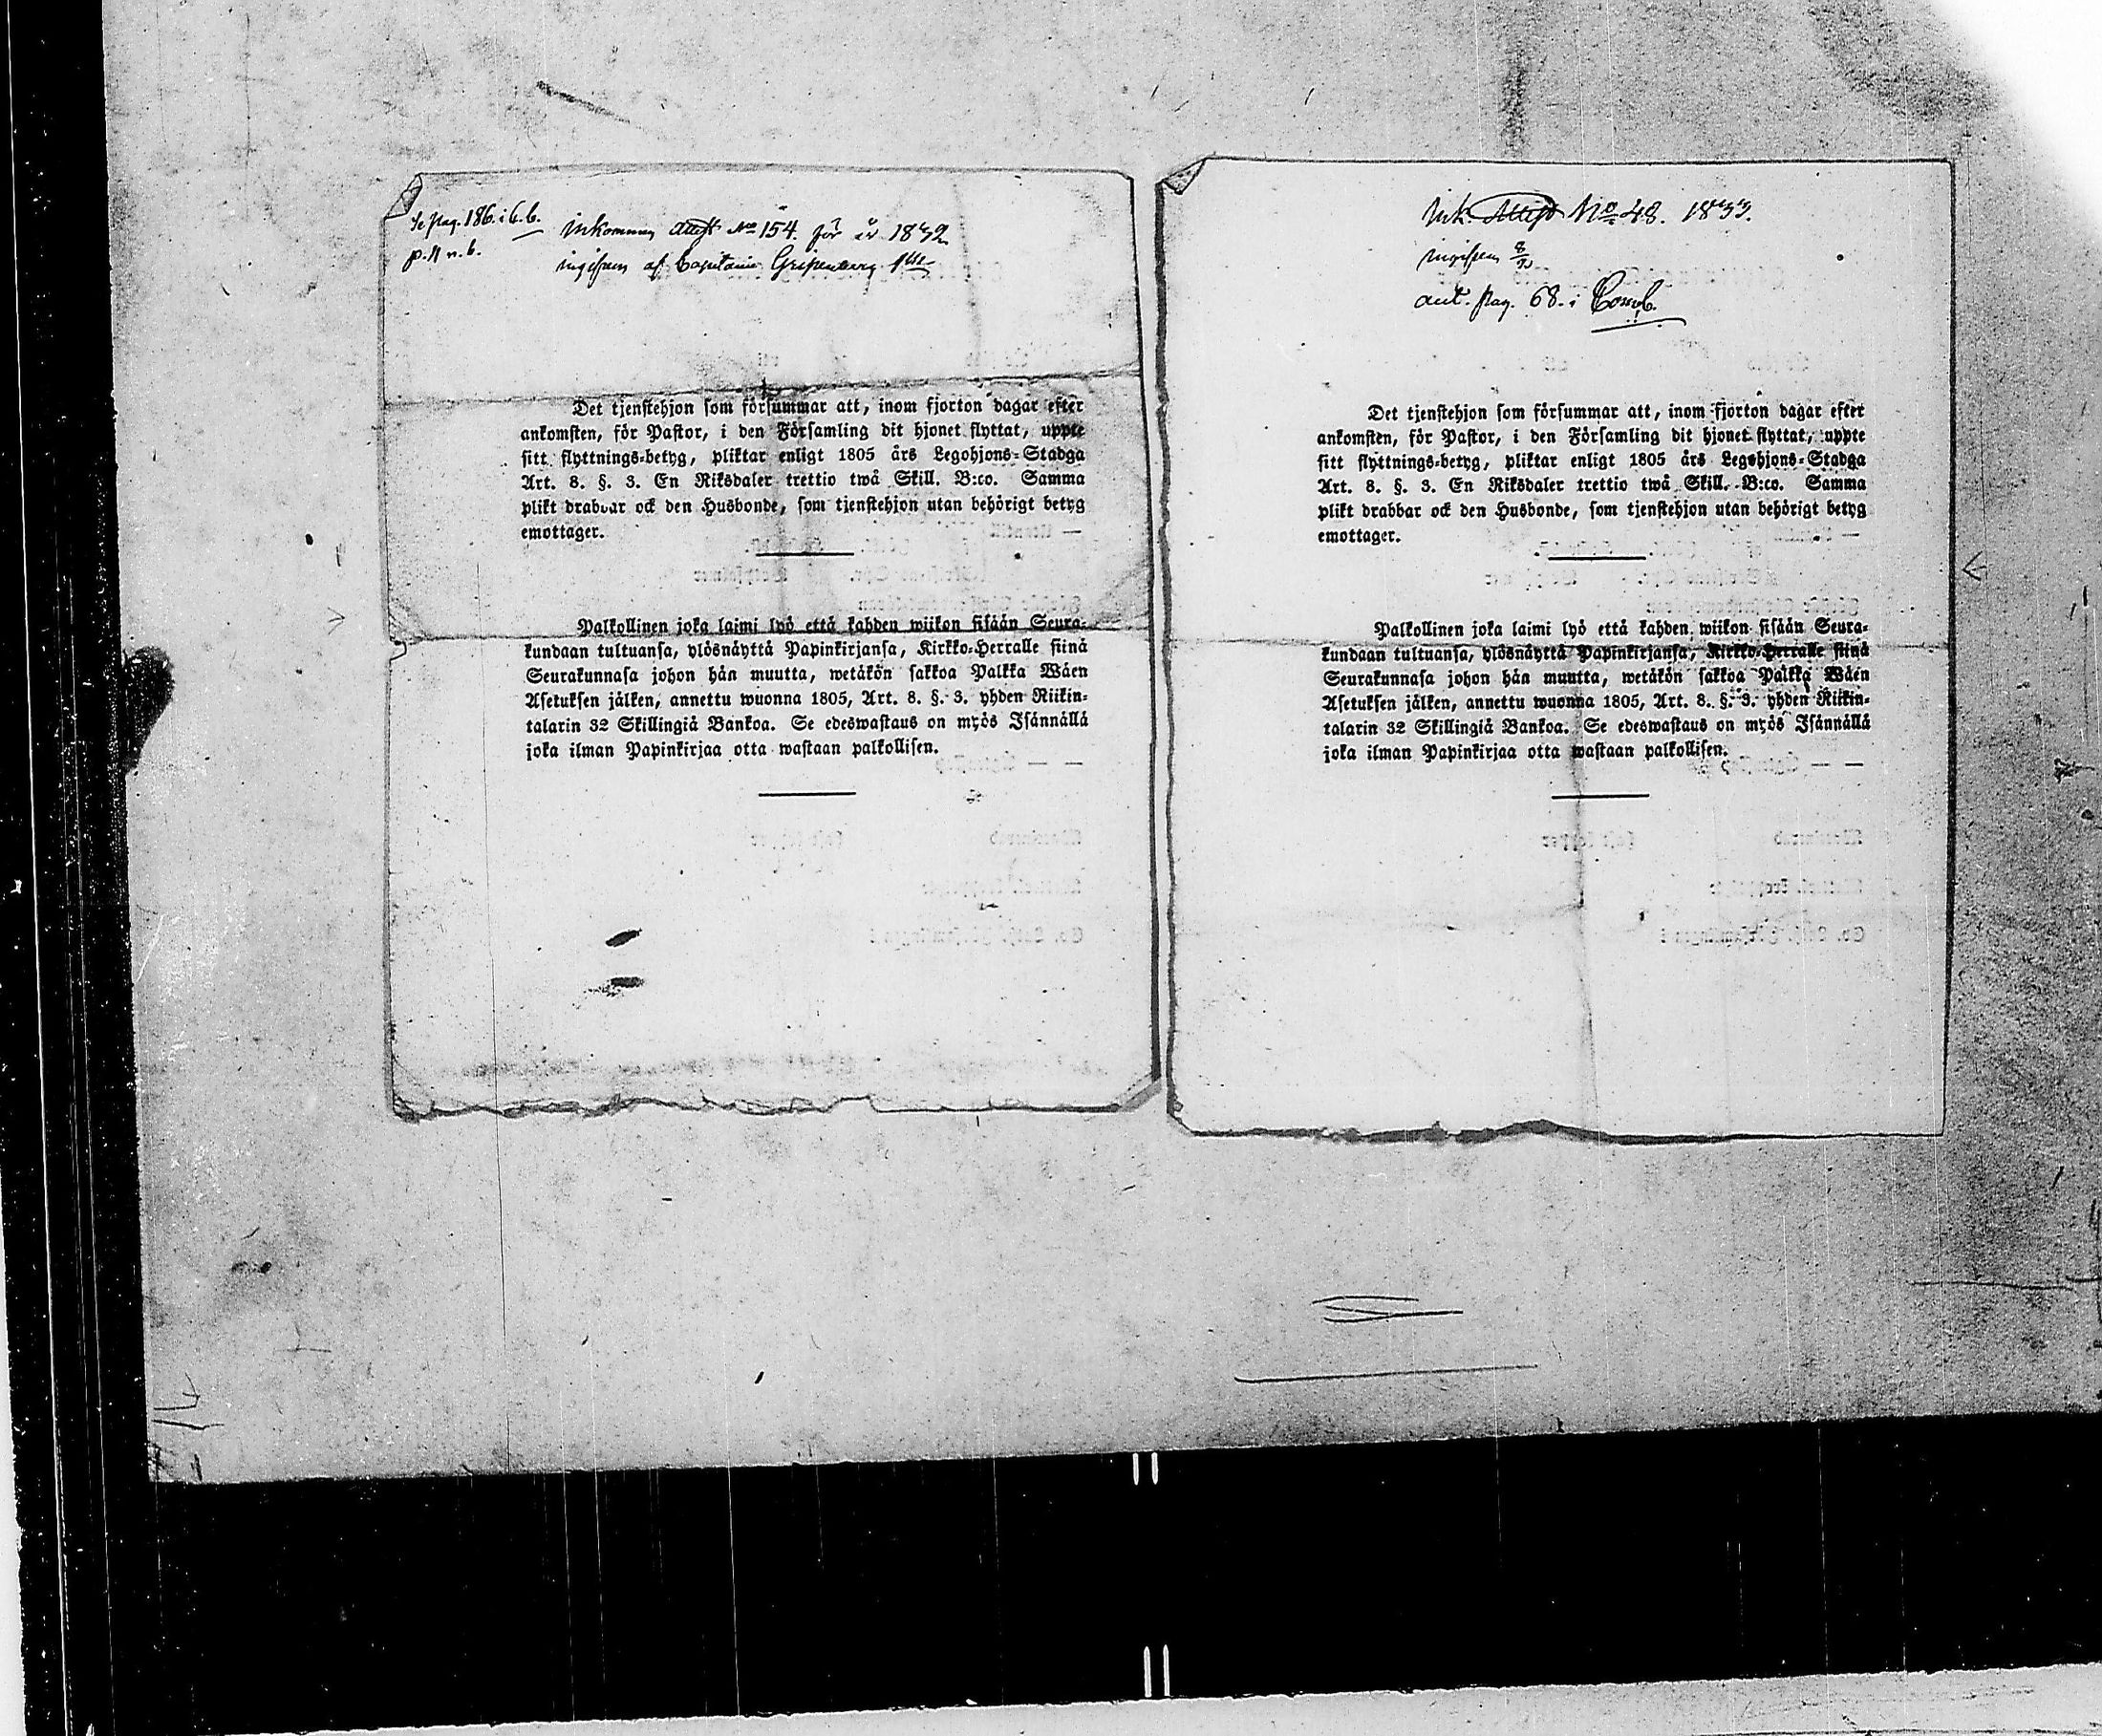 Se pag. 186. i C. b.
p. 11 n. 6.
inkommen attest No 154. för år 1832
ingifven af Capitaine Gripenberg
Det tjenstehjon som försummar att, inom fjorton dagar efter
ankomsten, för Pastor, i den Församling dit hjonet flyttat, uppte
sitt flyttnings-betyg, pliktar enligt 1805 års Legohjons-Stadga
Art. 8. §. 3. En Riksdaler trettio twå Skill. B:co. Samma
plikt drabbar ock den Husbonde, som tjenstehjon utan behörigt betyg
emottager.
Palkollinen joka laimi lyöettå kahden wiikon sisåån Seura-
kundaan tultuansa, ylösnåyttå Papinkirjansa, Kirkko-Herralle siinå
Seurakunnasa johon hån muutta, wetåkön sakkoa Palkka Wåen
Asetuksen jålken, annettu wuonna 1805, Art. 8. §. 3. yhden Riikin-
talarin 32 Skillingiå Bankoa. Se edeswastaus on myös Isånnållå
joka ilman Papinkirjaa otta wastaan palkollisen.
Ink. Attest No 48. 1833.
ingifven
ant. pag. 68. i Comb.
Det tjenstehjon som försummar att, inom fjorton dagar efter
ankomsten, för Pastor, i den Församling dit hjonet flyttat, uppte
sitt flyttnings-betyg, pliktar enligt 1805 års Legohjons-Stadga
Art. 8. §. 3. En Riksdaler trettio twå Skill. B:co. Samma
plikt drabbar ock den Husbonde, som tjenstehjon utan behörigt betyg
emottager.
Palkollinen joka laimi lyö ettå kahden wiikon sisåån Seura-
kundaan tultuansa, ylösnåyttå Papinkirjansa, Kirkko-Herralle siinå
Seurakunnasa johon hån muutta, wetåkön sakkoa Palkka Wåen
Asetuksen jålken, annettu wuonna 1805, Art. 8. §. 3. yhden Riikin-
talarin 32 Skillingiå Bankoa. Se edeswastaus on myös Isånnållå
joka ilman Papinkirjaa otta wastaan palkollisen.